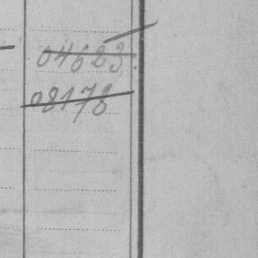 04623.
08178